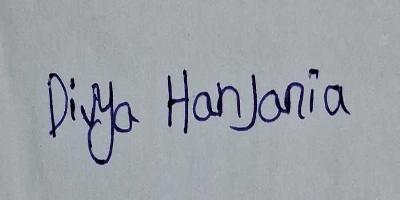 Divya Hanjania